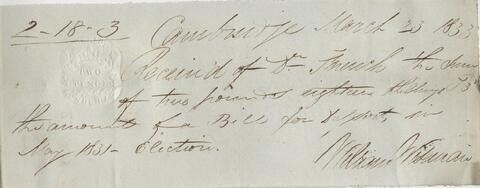 2-18-3
Cambridge March 23 1833
Received of Dr French the Sum
of two pounds eighteen shillings & 3
the amount of a Bill for in
May 1831 - Election.
William
TWO
PENCE